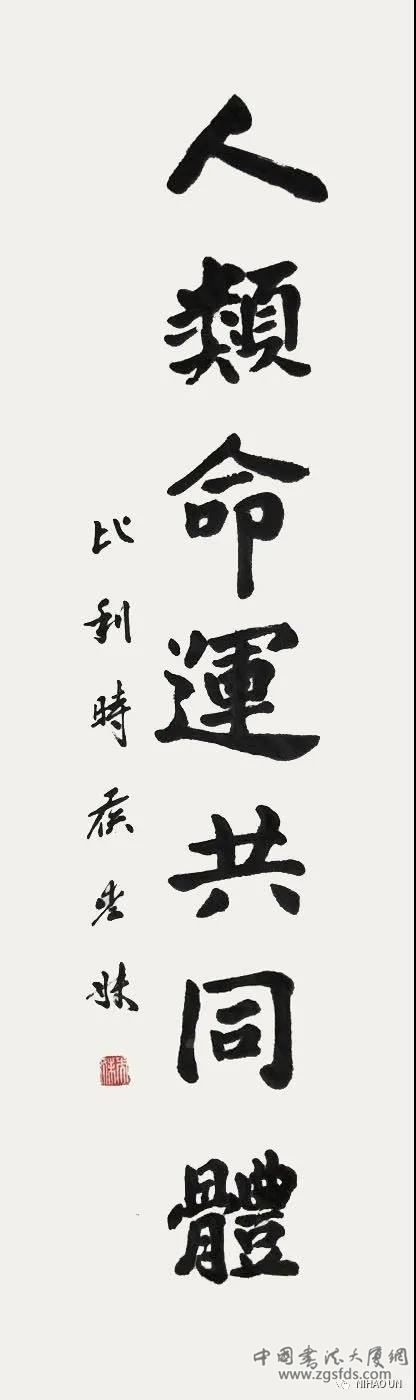 人類命運共同體
比利時侯
中国書法大厦網
www.zgsfds.com
NIHAO UN